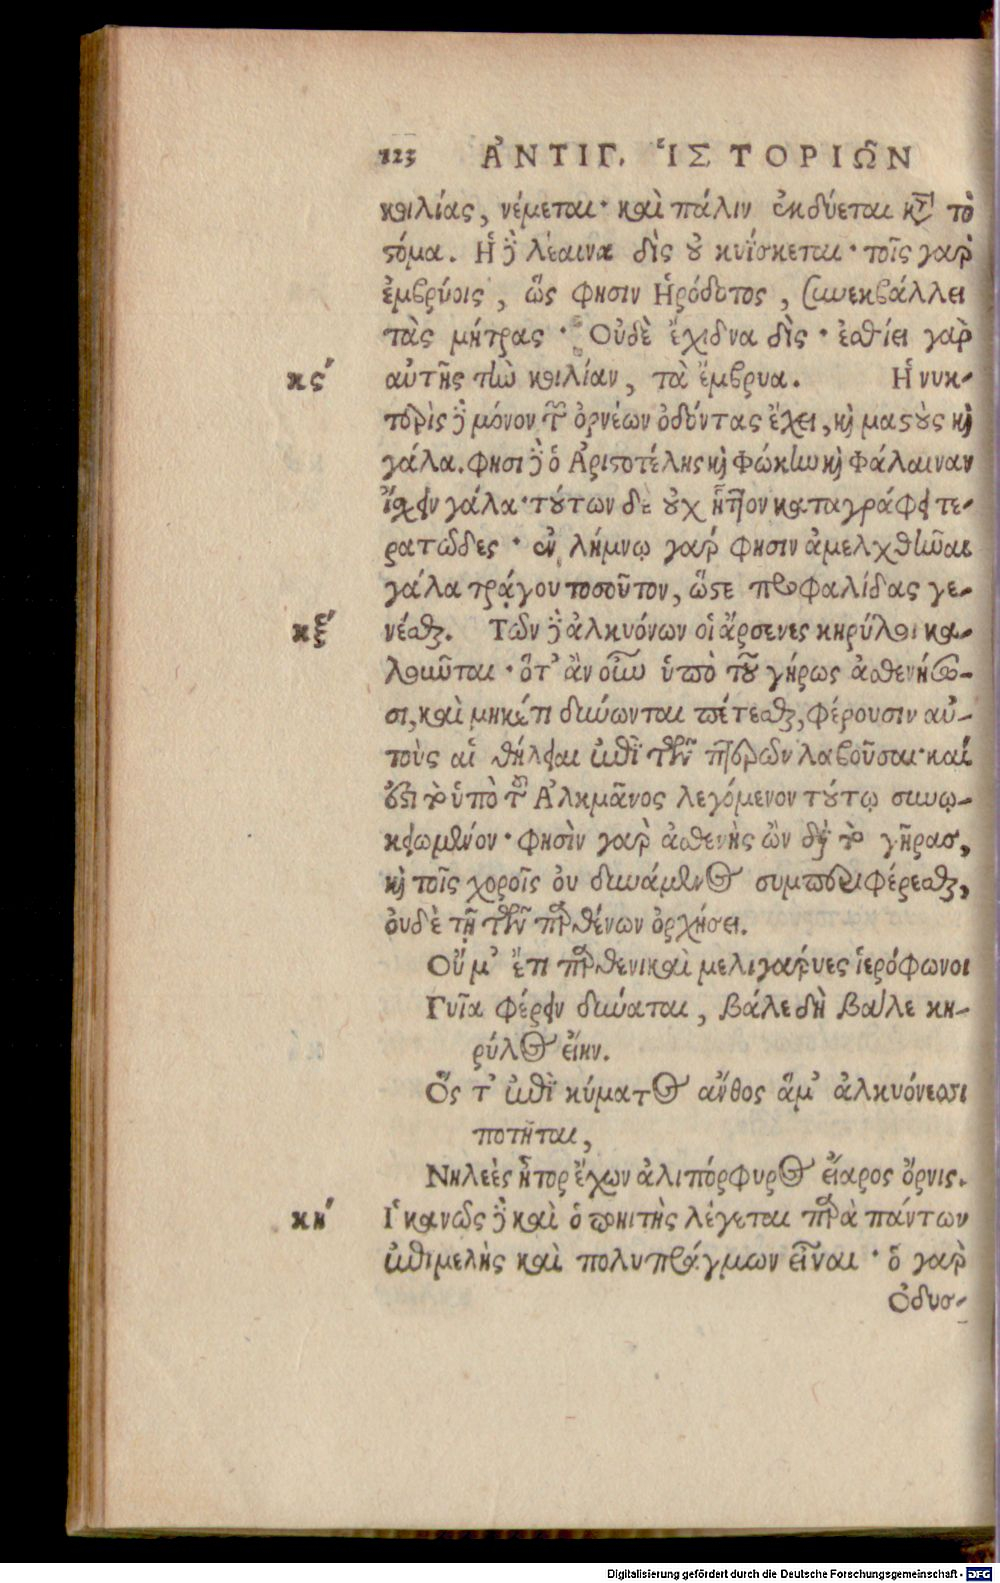 123 ἈΝΤΙΓ. ἹΣΤΟΡΙΩ͂Ν
κοιλίας, νέμεται· καὶ πάλιν ἐκδύεται κτ τὸ
ϛόμα. Ἡ ἢ λέαινα δὶς οὐ κυΐσκεται· τοῖς γαρ̀
ἐμβρύοις, ὥς φησιν Ἡρόδοτος, συνεκβάλλει
τὰς μήτρας· Οὐδὲ ἔχιδνα δὶς· ἐσθίει γαρ̀
κϛʹ αὐτῆς τὴν κοιλίαν, τὰ ἔμβρυα. Ἡ νυκ-
τερὶς ἢ μόνον τῶν ὀρνέων ὀδόντας ἔχει, καὶ μαϛοὺς καὶ
γάλα. φησὶ ἢ ὁ Ἀριϛοτέλης καὶ Φώκην καὶ Φάλαιναν
ἴσχειν γάλα· τούτων δὲ οὐχ ἧττον καταγράφει τε-
ρατῶδες· ἐν λήμνῳ γάρ φησιν ἀμελχθῆναι
γάλα τράγου τοσοῦτον, ὥϛε τροφαλίδας γε-
κξʹ νέσθαι. Τῶν ἢ ἀλκυόνων οἱ ἄρσενες κηρύλοι κα-
λοῦνται· ὅτ᾽ ἂν οὖν ὑπὸ τοῦ γήρως ἀσθενήσω-
σι, καὶ μηκέτι δύνωνται πέτεσθαι, φέρουσιν αὐ-
τοὺς αἱ θήλειαι ἐπὶ τῶν πτερῶν λαβοῦσαι· καί
ἐϛι τὸ ὑπὸ τοῦ Ἀλκμᾶνος λεγόμενον τούτῳ συνῳ-
κειωμένον· φησὶν γαρ̀ ἀσθενὴς ὢν διὰ τὸ γῆρας,
καὶ τοῖς χοροῖς οὐ δυνάμενος συμπεριφέρεσθαι,
οὐδὲ τῇ τῶν παρθένων ὀρχήσει.
Οὔ μ᾽ ἔτι παρθενικαὶ μελιγάρυες ἱερόφωνοι
Γυῖα φέρειν δύναται, βάλε δὴ βάλε κη-
ρύλος εἴην.
Ὅς τ᾽ ἐπὶ κύματος ἄνθος ἅμ᾽ ἀλκυόνεσσι
ποτῆται,
Νηλεὲς ἦτορ ἔχων ἁλιπόρφυρος εἴαρος ὄρνις.
κηʹ Ἱκανῶς ἢ καὶ ὁ ποιητὴς λέγεται παρὰ πάντων
ἐπιμελὴς καὶ πολυπράγμων εἶναι· ὁ γαρ̀
Ὀδυσ-
Digitalisierung gefördert durch die Deutsche Forschungsgemeinschaft - DFG